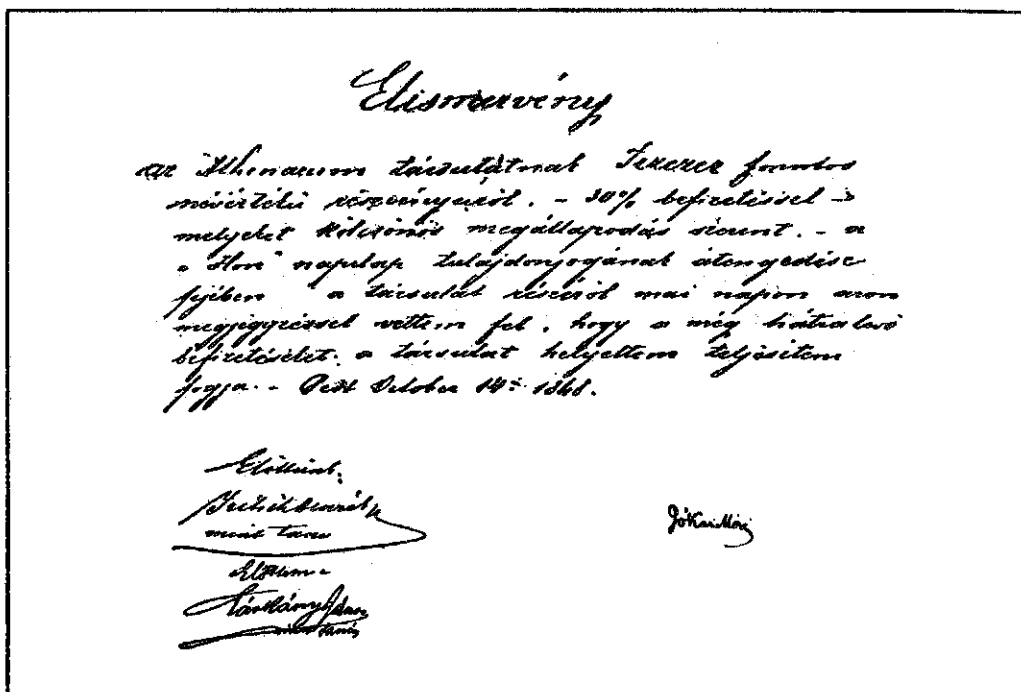 Elismervény
az Athenaeum társulatnak Tízezer forintos
névértékű részvényeiről. - 30% befizetéssel -
melyeket kölcsönös megállapodás szerint. - a
"Hon" napilap tulajdonjogának átengedése
fejében a társulat részéről mai napon azon
megjegyzéssel vettem fel, hogy a még hátralevő
befizetéseket a társulat helyettem teljesíteni
fogja. - Pest October 14= 1868.
Előttünk:
mint tanu
Jókai Mór
Előttem
mint tanú